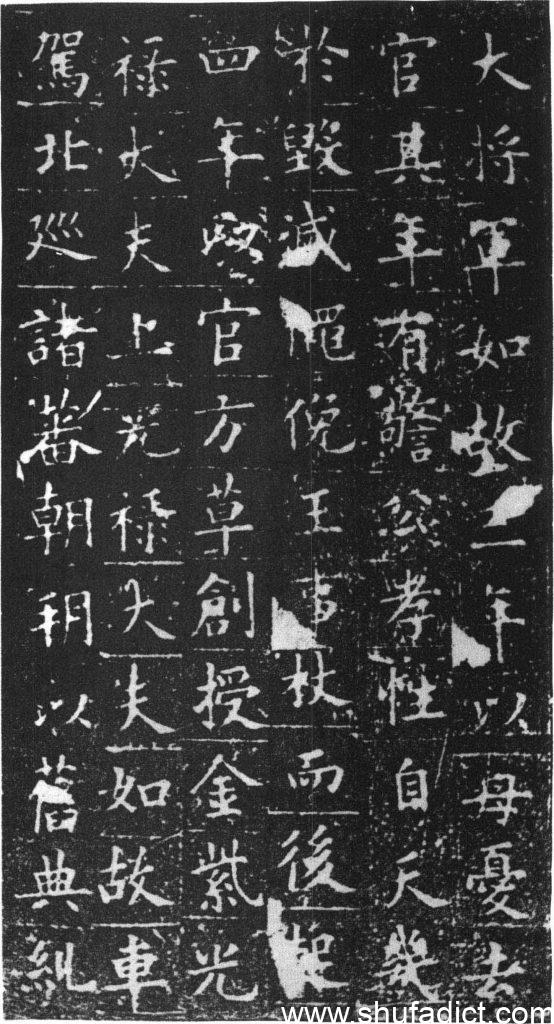 大將軍如故二年以母憂去
官其年有公孝性自天幾
於毀滅僶俛王事杖而後起
四年官方草創授金紫光
祿大夫上光祿大夫如故車
駕北巡諸蕃朝以舊典糺
www.shufadict.com